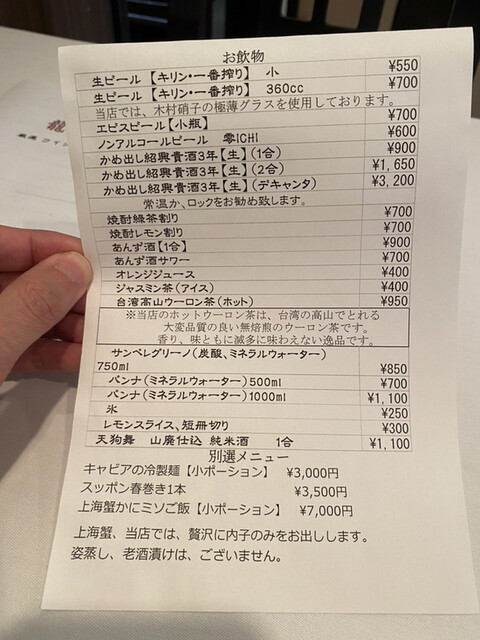 お飲物
生ビール 【キリン・一番搾り】 小 ¥550
生ビール 【キリン・一番搾り】 360cc ¥700
当店では、木村硝子の極薄グラスを使用しております。
エビスビール【小瓶】 ¥700
ノンアルコールビール 零ICHI ¥600
かめ出し紹興貴酒3年【生】(1合) ¥900
かめ出し紹興貴酒3年【生】(2合) ¥1,650
かめ出し紹興貴酒3年【生】(デキャンタ) ¥3,200
常温か、ロックをお勧め致します。
焼酎緑茶割り ¥700
焼酎レモン割り ¥700
あんず酒【1合】 ¥900
あんず酒サワー ¥700
オレンジジュース ¥400
ジャスミン茶(アイス) ¥400
台湾高山ウーロン茶(ホット) ¥950
※当店のホットウーロン茶は、台湾の高山でとれる
大変品質の良い無焙煎のウーロン茶です。
香り、味ともに滅多に味わえない逸品です。
サンペレグリーノ(炭酸、ミネラルウォーター)
750ml ¥850
パンナ(ミネラルウォーター)500ml ¥700
パンナ(ミネラルウォーター)1000ml ¥1,100
氷 ¥250
レモンスライス、短冊切り ¥300
天狗舞 山廃仕込 純米酒 1合 ¥1,100
別選メニュー
キャビアの冷製麺【小ポーション】 ¥3,000円
スッポン春巻き1本 ¥3,500円
上海蟹かにミソご飯【小ポーション】 ¥7,000円
上海蟹、当店では、贅沢に内子のみをお出しします。
姿蒸し、老酒漬けは、ございません。